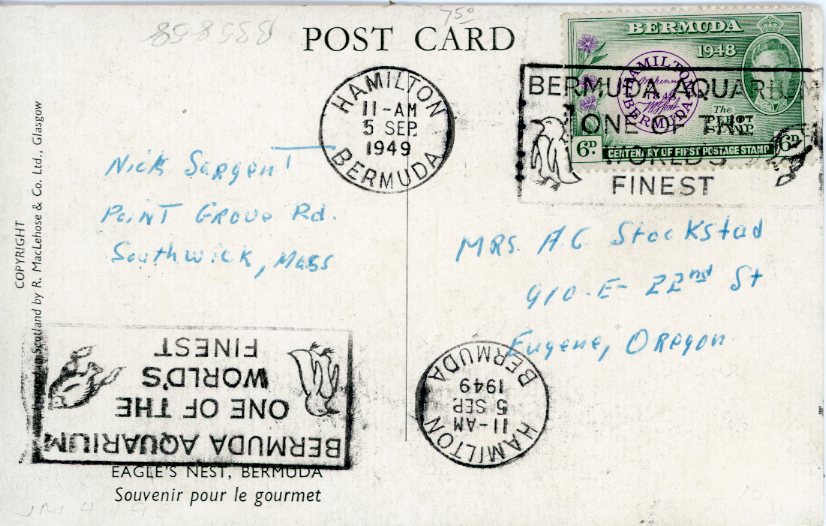 B35858
750
POST CARD
BERMUDA
1948
HAMILTON
BERMUDA
The
FIRST
STAMP
6D
CENTENARY OF FIRST POSTAGE STAMP
6D
BERMUDA AQUARIUM
ONE OF THE
WORLD'S
FINEST
HAMILTON
11-AM
5 SEP.
1949
BERMUDA
Nick Sargent
Point Grove Rd.
Southwick, Mass
MRS. AC Stockstad
910-E-22nd St
Eugene, Oregon
COPYRIGHT
Scotland by R. MacLehose & Co. Ltd., Glasgow
BERMUDA AQUARIUM
ONE OF THE
WORLD'S
FINEST
HAMILTON
11-AM
5 SEP.
1949
BERMUDA
EAGLE'S NEST, BERMUDA
Souvenir pour le gourmet